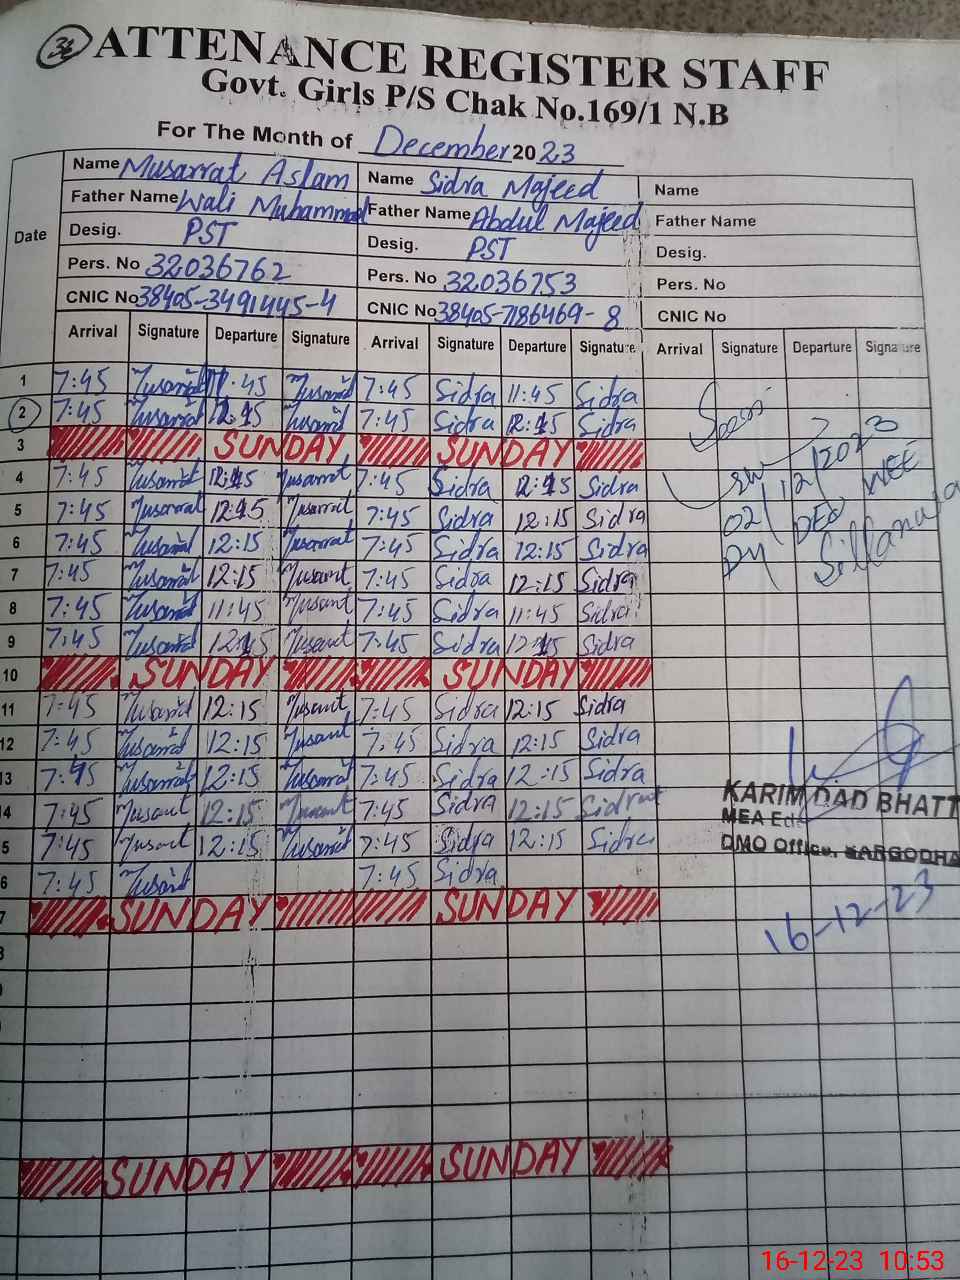 36 ATTENANCE REGISTER STAFF
Govt. Girls P/S Chak No.169/1 N.B
For The Month of December 2023
Date Name Musarrat Aslam Name Sidra Majeed Name
Father Name Wali Muhammad Father Name Abdul Majeed Father Name
Desig. PST Desig. PST Desig.
Pers. No 32036762 Pers. No 32036753 Pers. No
CNIC No 38405-3491445-4 CNIC No 38405-7186469-8 CNIC No
Arrival Signature Departure Signature Arrival Signature Departure Signature Arrival Signature Departure Signature
1 7:45 Musarrat 11:45 Musarrat 7:45 Sidra 11:45 Sidra
2 7:45 Musarrat 12:15 Musarrat 7:45 Sidra 12:15 Sidra
3 SUNDAY SUNDAY
4 7:45 Musarrat 12:15 Musarrat 7:45 Sidra 12:15 Sidra
5 7:45 Musarrat 12:15 Musarrat 7:45 Sidra 12:15 Sidra
02/12/2023
6 7:45 Musarrat 12:15 Musarrat 7:45 Sidra 12:15 Sidra
Dy DEO WEE
7 7:45 Musarrat 12:15 Musarrat 7:45 Sidra 12:15 Sidra
Sillanwali
8 7:45 Musarrat 11:45 Musarrat 7:45 Sidra 11:45 Sidra
9 7:45 Musarrat 12:15 Musarrat 7:45 Sidra 12:15 Sidra
10 SUNDAY SUNDAY
11 7:45 Musarrat 12:15 Musarrat 7:45 Sidra 12:15 Sidra
12 7:45 Musarrat 12:15 Musarrat 7:45 Sidra 12:15 Sidra
13 7:45 Musarrat 12:15 Musarrat 7:45 Sidra 12:15 Sidra
KARIM DAD BHATT
14 7:45 Musarrat 12:15 Musarrat 7:45 Sidra 12:15 Sidra
MEA
5 7:45 Musarrat 12:15 Musarrat 7:45 Sidra 12:15 Sidra
DMO Office, SARGODHA
6 7:45 Musarrat 7:45 Sidra
7 SUNDAY SUNDAY
16-12-23
SUNDAY SUNDAY
16-12-23 10:53